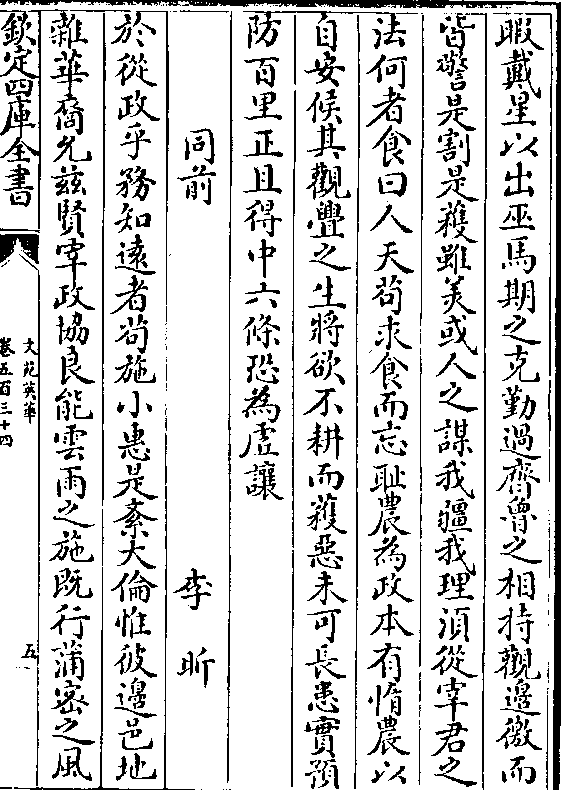 暇戴星以出巫馬期之克勤過齊魯之相持觀邊徼而
皆警是割是穫雖美或人之謀我疆我理須從宰君之
法何者食曰人天苟求食而忘耻農為政本有惰農以
自安候其觀舋之生將欲不耕而穫惡未可長患實預
防百里正且得中六條恐為虛讓
同前 李昕
於從政乎務知遠者苟施小惠是紊大倫惟彼邊邑地
雜華裔允茲賢宰政協良能雲雨之施既行蒲密之風
欽定四庫全書
文苑英華
卷五百三十四
五